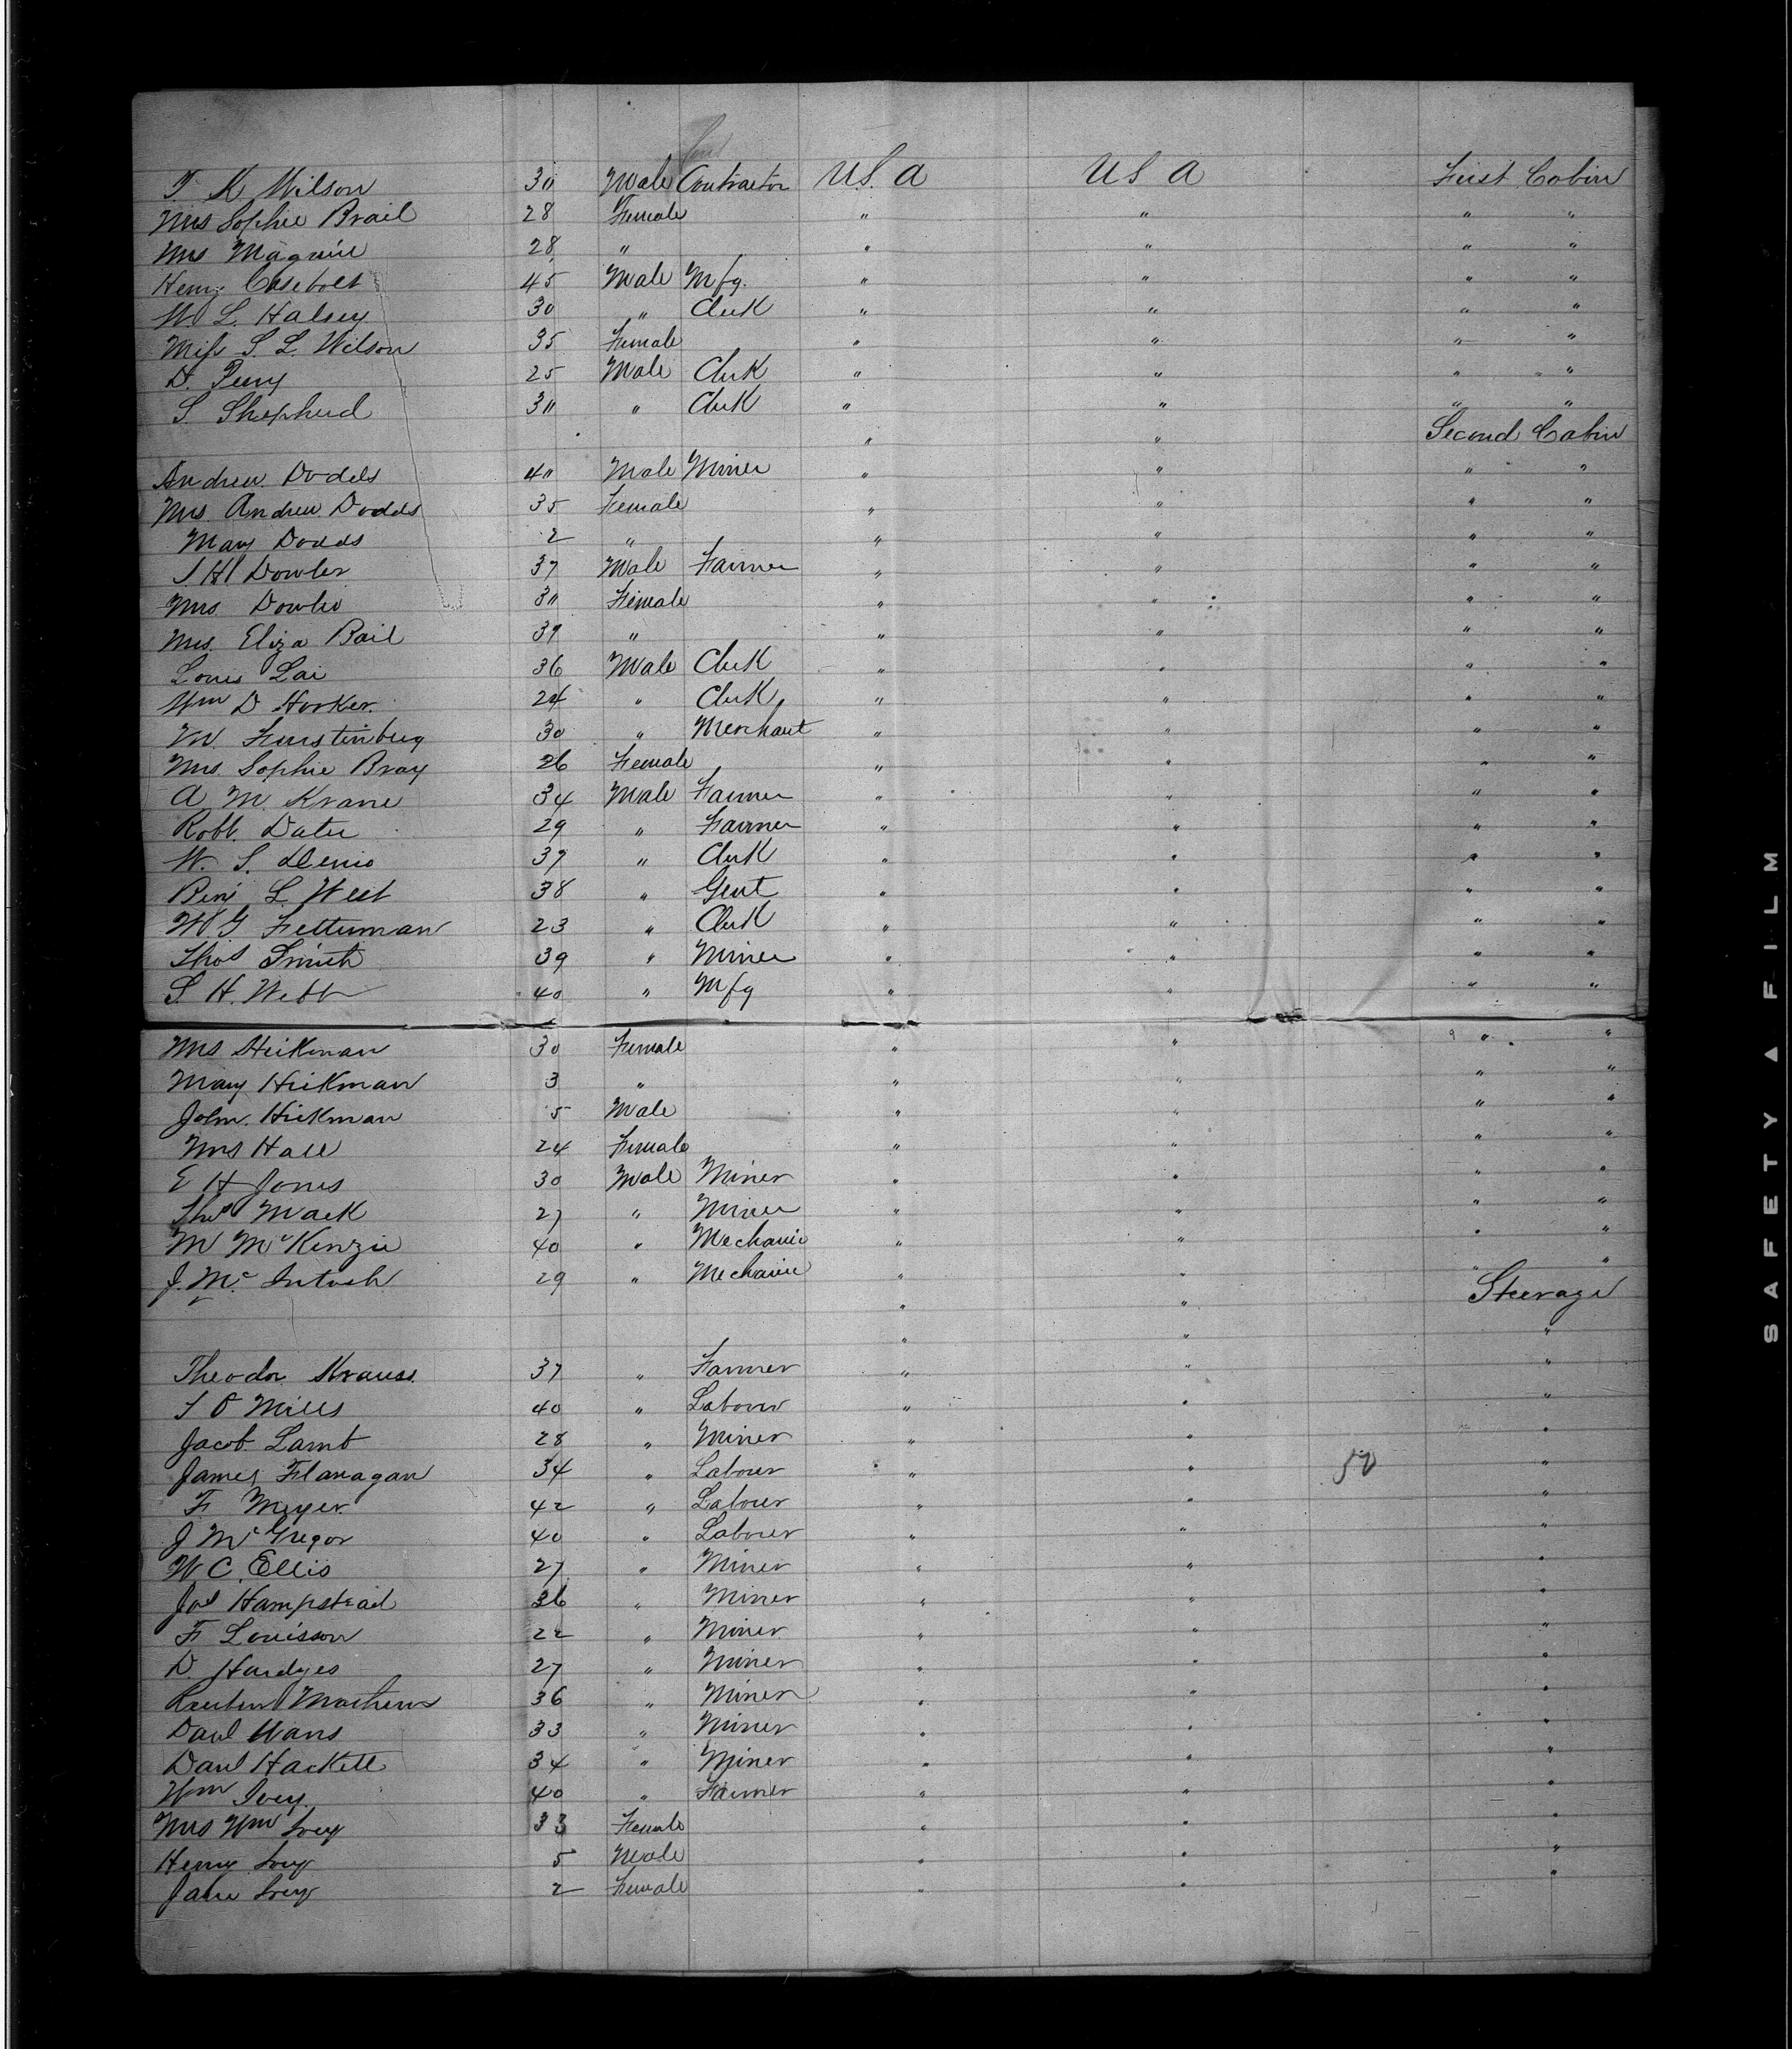 T. K Wilson 30 Male Contractor U.S. A U S A First Cabin
Mrs Sophie Brail 28 Female " " " "
Mrs Maguire 28 " " " " "
Henry Casebolt 45 Male Mfg. " " " "
W. L. Halsey 30 " Clerk " " " "
Miss S. L. Wilson 35 Female " " " "
D. Perry 25 Male Clerk " " " "
S. Shepherd 30 " Clerk " " " "
" " Second Cabin
Andrew Dodds 40 Male Miner " " " "
Mrs. Andrew Dodds 35 Female " " " "
Mary Dodds 2 " " " " "
J H Dowler 37 Male Farmer " " " "
Mrs Dowler 30 Female " " " "
Mrs. Eliza Bail 39 " " " " "
Louis Lai 36 Male Clerk " " " "
Wm D Horker. 24 " Clerk " " " "
M. Furstinburg 30 " Merchant " " " "
Mrs. Sophie Bray 26 Female " " " "
A M. Krane 34 Male Farmer " " " "
Robt. Dater 29 " Farmer " " " "
W. S. Denio 39 " Clerk " " " "
Benj L. West 38 " Gent " " " "
W G Fetterman 23 " Clerk " " " "
Thos Smith 39 " Miner " " " "
S. H. Webb 40 " Mfg " " " "
Mrs Hickman 30 Female " " " "
Mary Hickman 3 " " " " "
John. Hickman 5 Male " " " "
Mrs Hall 24 Female " " " "
E H Jones 30 Male Miner " " " "
Thos Mack 27 " Miner " " " "
M McKenzie 40 " Mechanic " " " "
J. Mc. Intosh 29 " Mechanic " " " "
" " Steerage
" " "
Theodor Krauss. 37 " Farmer " " "
S O Mills 40 " Labourer " " "
Jacob Lamb 28 " Miner " " "
James Flanagan 34 " Labourer " " 50 "
F. Meyer. 42 " Labourer " " "
J McGregor 40 " Labourer " " "
W C. Ellis 27 " Miner " " "
Jos Hampstead 36 " Miner " " "
F Louisson 22 " Miner " " "
D. Hardyes 27 " Miner " " "
Reuben Mathews 36 " Miner " " "
Danl Wans 33 " Miner " " "
Danl Hackett 34 " Miner " " "
Wm Ivey. 40 " Farmer " " "
Mrs Wm Ivey 33 Female " " "
Henry Ivey 5 Male " " "
Jane Ivey 2 Female " " "
SAFETY ▲ FILM